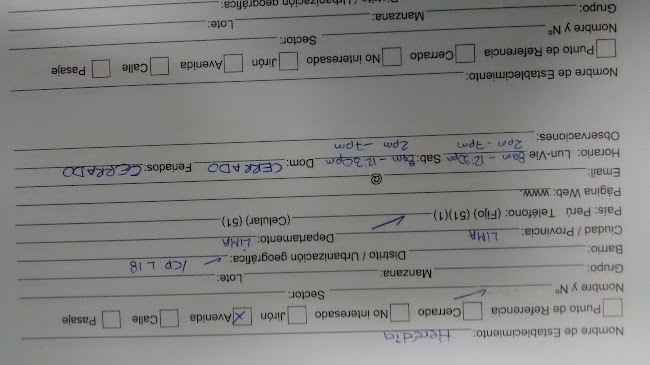 Nombre de Establecimiento: Heredia
Punto de Referencia Cerrado No interesado Jirón Avenida X Calle Pasaje
Nombre y Nº Sector:
Grupo: Manzana: Lote:
Barrio: Distrito / Urbanización geográfica: /CP: L18
Ciudad / Provincia: LIMA Departamento: LIMA
País: Perú Teléfono: (Fijo) (51)(1) (Celular) (51)
Página Web: www.
Email: @
Horario: Lun-Vie 8am - 12:30pm Sab: 8am - 12:30pm Dom: CERRADO Feriados: CERRADO
2pm - 7pm 2pm - 7pm
Observaciones:
Nombre de Establecimiento:
Punto de Referencia Cerrado No interesado Jirón Avenida Calle Pasaje
Nombre y Nº Sector:
Grupo: Manzana: Lote:
Urbanización geográfica: